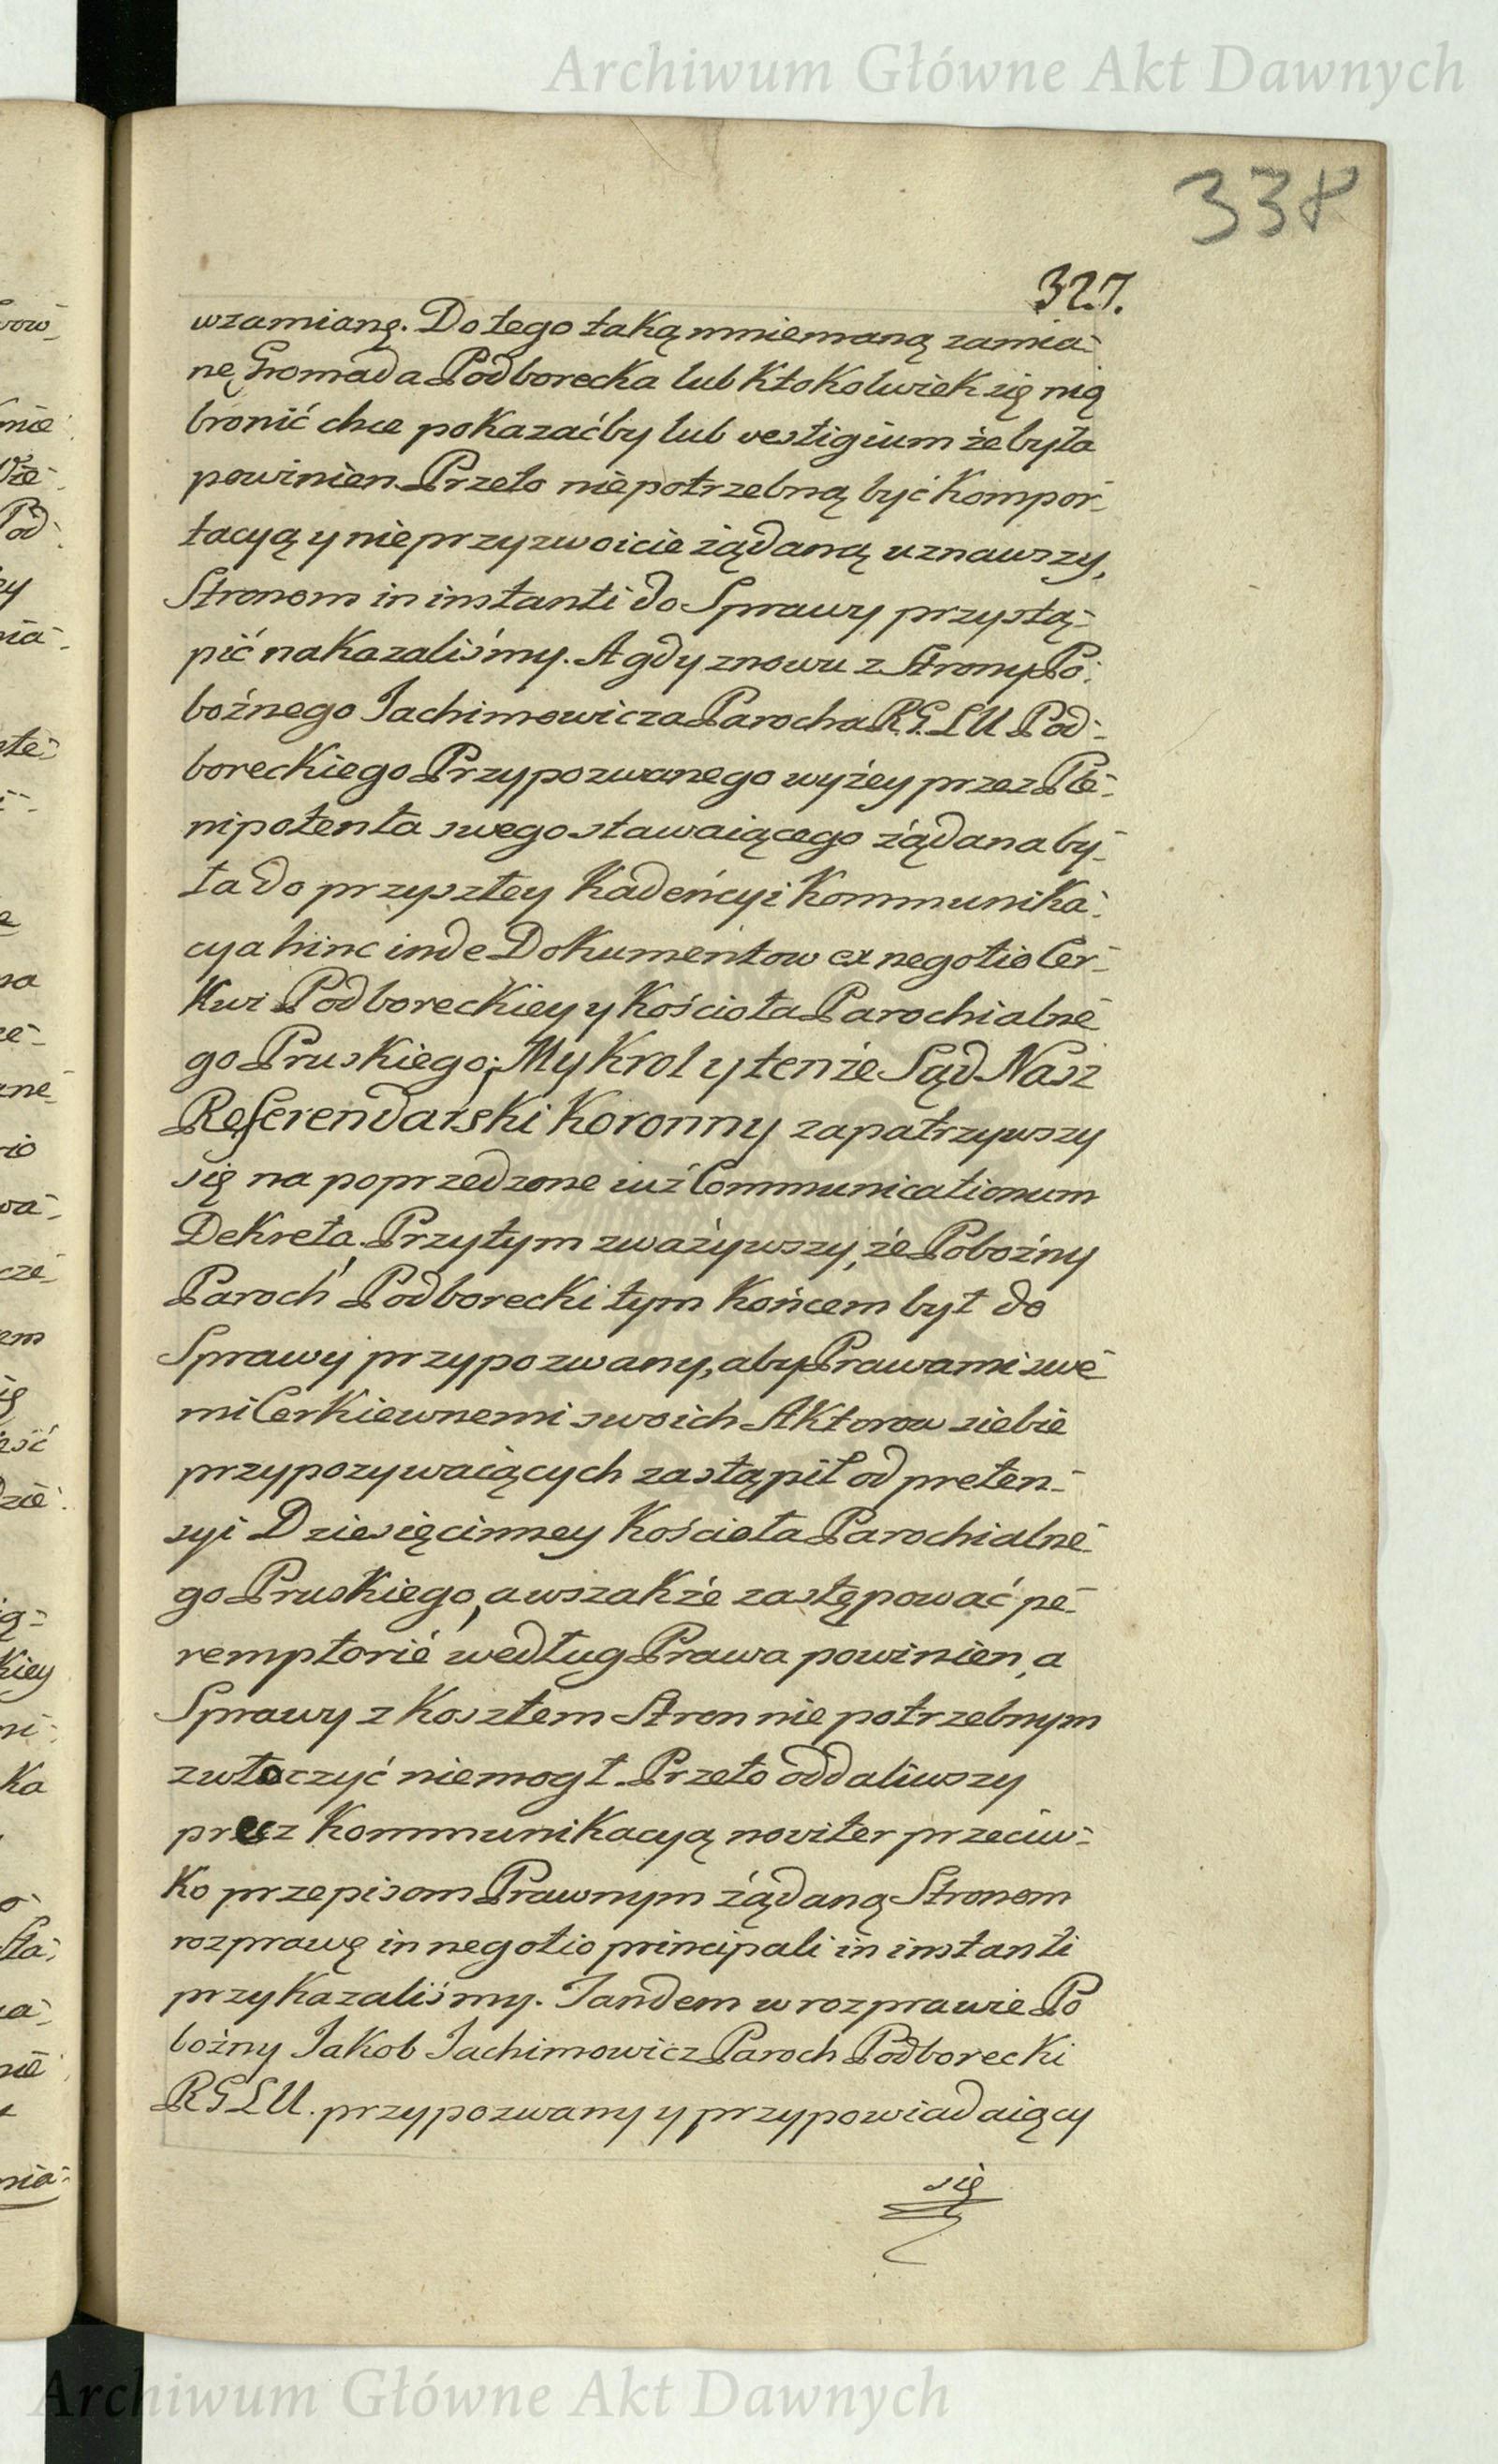 Archiwum Główne Akt Dawnych
338
327.
wzamianę. Do tego taką mniemaną zamia-
nę Gromada Podborecka lub Ktokolwiek się nią
bronić chce pokazaćby lub vestigium że była
powinien. Przeto niepotrzebną być Kompor-
tacyą y nieprzyzwoicie żądaną uznawszy,
Stronom in instanti do Sprawy przystą-
pić nakazaliśmy. A gdy znowu z Strony Po-
bożnego Jachimowicza Parocha RGLU Pod-
boreckiego Przypozwanego wyżey przez Ple-
nipotenta swego stawaiącego żądana by-
ła do przyszłey Kadencyi Kommunika-
cya hinc inde Dokumentow ex negotio Cer-
Kwi Podboreckiey y Kościoła Parochialne-
go Pruskiego; My Krol y tenże Sąd Nasz
Referendarski Koronny zapatrzywszy
się na poprzedzone iuż Communicationum
Dekreta. Przytym zważywszy, że Pobożny
Paroch Podborecki tym Końcem był do
Sprawy przypozwany, aby Prawami swe-
mi Cerkiewnemi swoich Aktorow siebie
przypozywaiących zastąpił od preten-
syi Dziesięcinney Kościoła Parochialne-
go Pruskiego, a wszakże zastępować pe-
remptorie według Prawa powinien, a
Sprawy z Kosztem Stron nie potrzebnym
zwłoczyć niemogł. Przeto oddaliwszy
precz Kommunikacyą noviter przeciw-
Ko przepisom Prawnym żądaną Stronom
rozprawę in negotio principali in instanti
przykazaliśmy. Tandem w rozprawie Po
bożny Jakob Jachimowicz Paroch Podborecki
RGLU. przypozwany y przypowiadaiący
się
Archiwum Główne Akt Dawnych